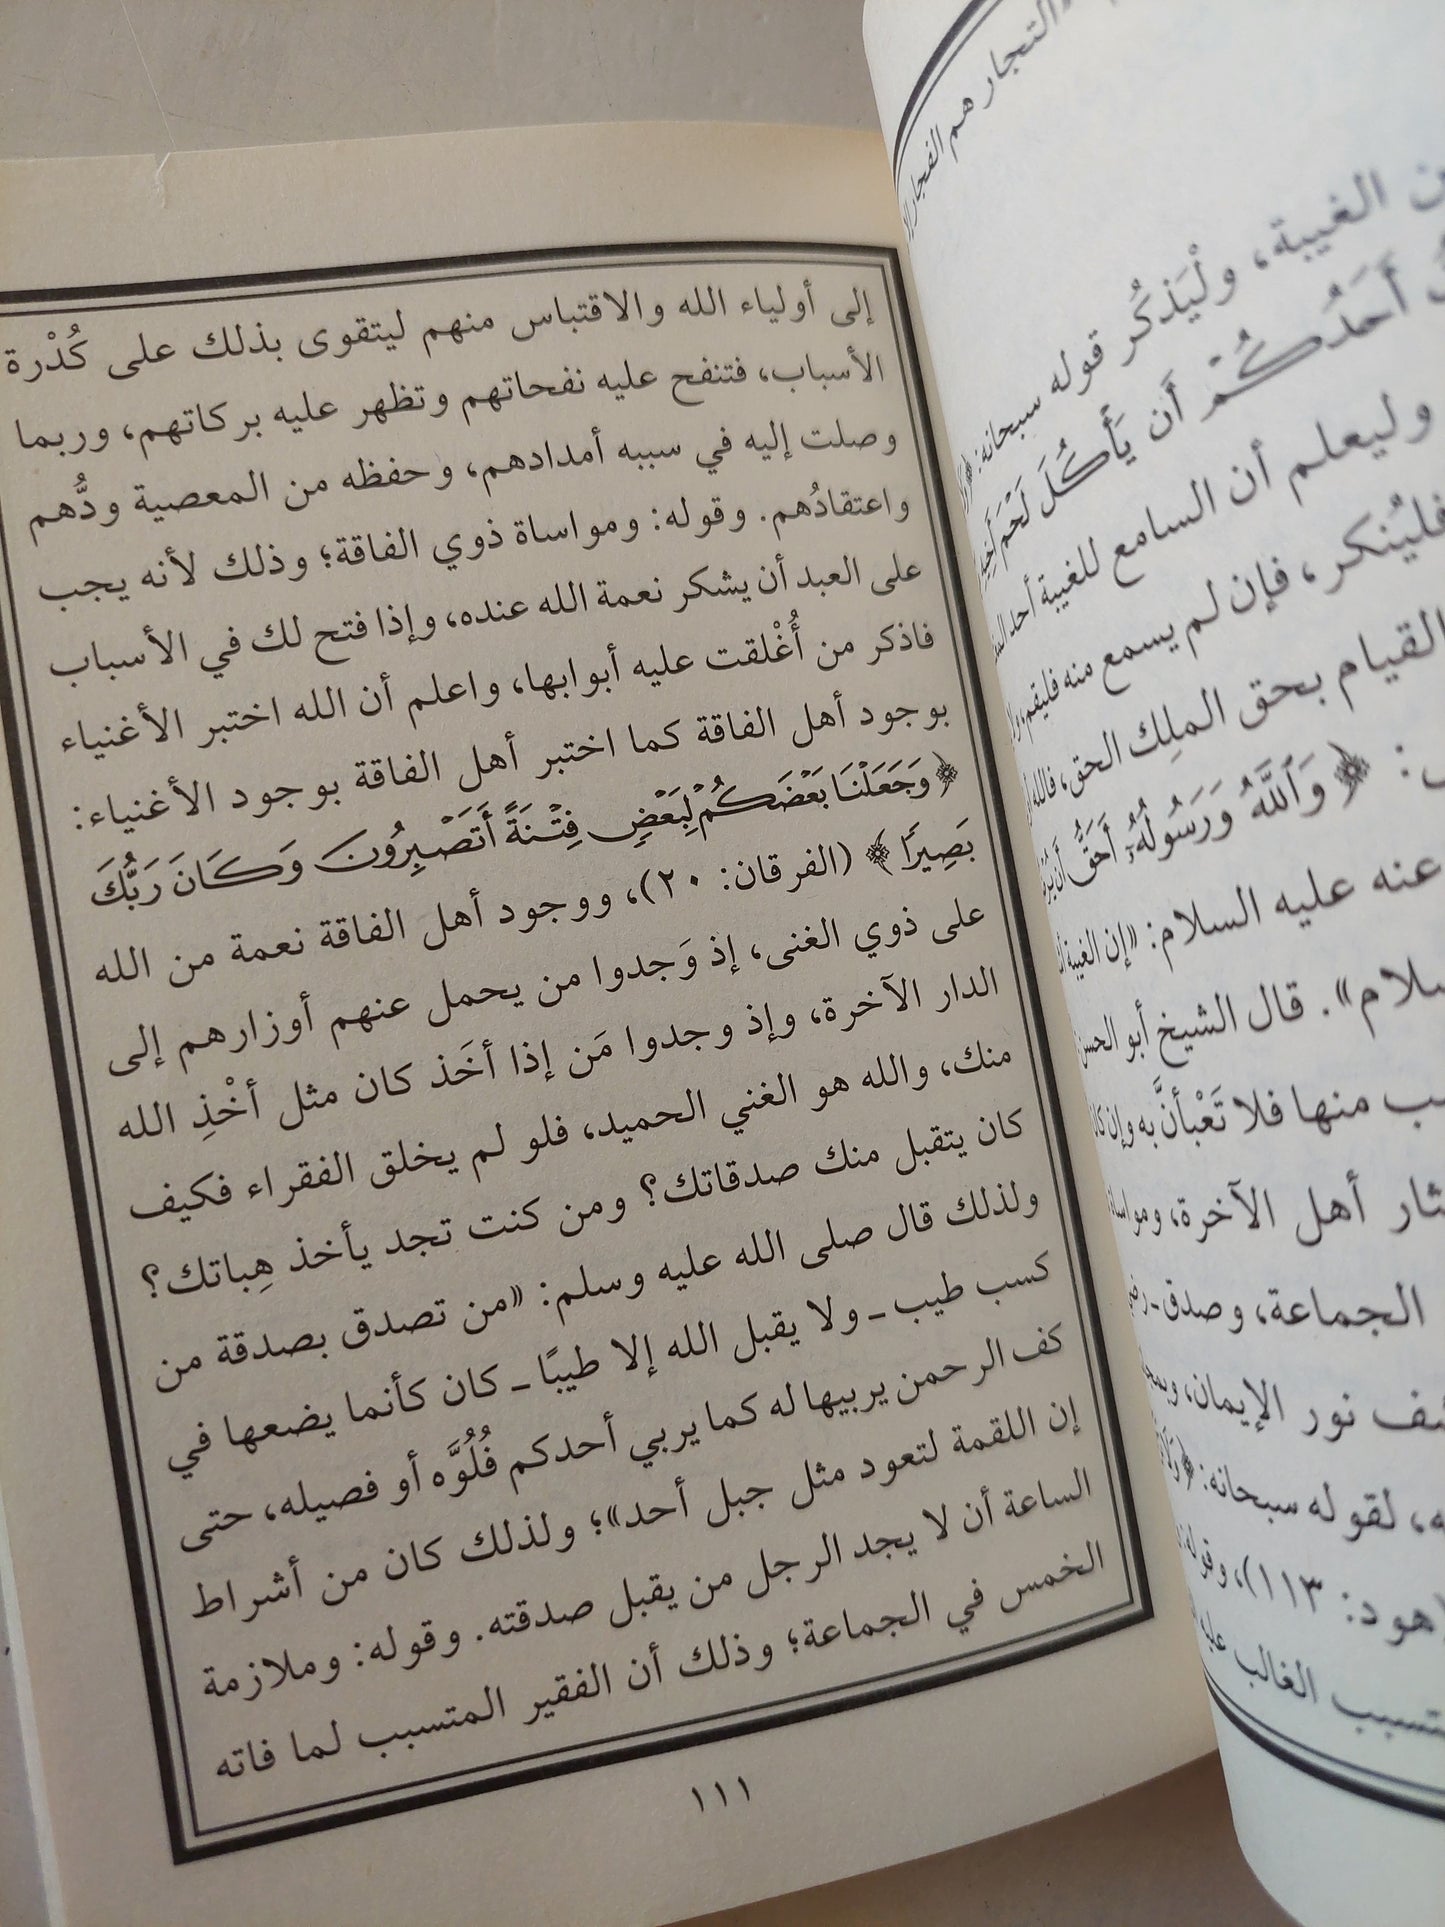 والتجار هم الفجار
ن الغيبة، ولْيَذكُر قوله سبحانه:
أَحَدُكُمْ أَن يَأْكُلَ لَحْمَ أَخِيهِ
وليعلم أن السامع للغيبة أحد
فليُنكر، فإن لم يسمع منه فليقم،
القيام بحق الملِك الحق، فالله
﴿ وَاللَّهُ وَرَسُولُهُ أَحَقُّ أَن
عنه عليه السلام: «إن الغيبة
سلام». قال الشيخ أبو الحسن
ب منها فلا تَعْبأنَّ به وإن كان
ثار أهل الآخرة، ومواساة
الجماعة، وصدق ـ
ف نور الإيمان،
ه، لقوله سبحانه: ﴿
هود: ١١٣)،
تسبب الغالب
إلى أولياء الله والاقتباس منهم ليتقوى بذلك على كُدْرة
الأسباب، فتنفح عليه نفحاتهم وتظهر عليه بركاتهم، وربما
وصلت إليه في سببه أمدادهم، وحفظه من المعصية ودُّهم
واعتقادُهم. وقوله: ومواساة ذوي الفاقة؛ وذلك لأنه يجب
على العبد أن يشكر نعمة الله عنده، وإذا فتح لك في الأسباب
فاذكر من أُغْلقت عليه أبوابها، واعلم أن الله اختبر الأغنياء
بوجود أهل الفاقة كما اختبر أهل الفاقة بوجود الأغنياء:
﴿ وَجَعَلْنَا بَعْضَكُمْ لِبَعْضٍ فِتْنَةً أَتَصْبِرُونَ وَكَانَ رَبُّكَ
بَصِيرًا ﴾ (الفرقان: ٢٠)، ووجود أهل الفاقة نعمة من الله
على ذوي الغنى، إذ وَجدوا من يحمل عنهم أوزارهم إلى
الدار الآخرة، وإذ وجدوا مَن إذا أخَذ كان مثل أخْذِ الله
منك، والله هو الغني الحميد، فلو لم يخلق الفقراء فكيف
كان يتقبل منك صدقاتك؟ ومن كنت تجد يأخذ هِباتك؟
ولذلك قال صلى الله عليه وسلم: «من تصدق بصدقة من
كسب طيب ـ ولا يقبل الله إلا طيبًا ـ كان كأنما يضعها في
كف الرحمن يربيها له كما يربي أحدكم فُلُوَّه أو فصيله، حتى
إن اللقمة لتعود مثل جبل أحد»؛ ولذلك كان من أشراط
الساعة أن لا يجد الرجل من يقبل صدقته. وقوله: وملازمة
الخمس في الجماعة؛ وذلك أن الفقير المتسبب لما فاته
١١١